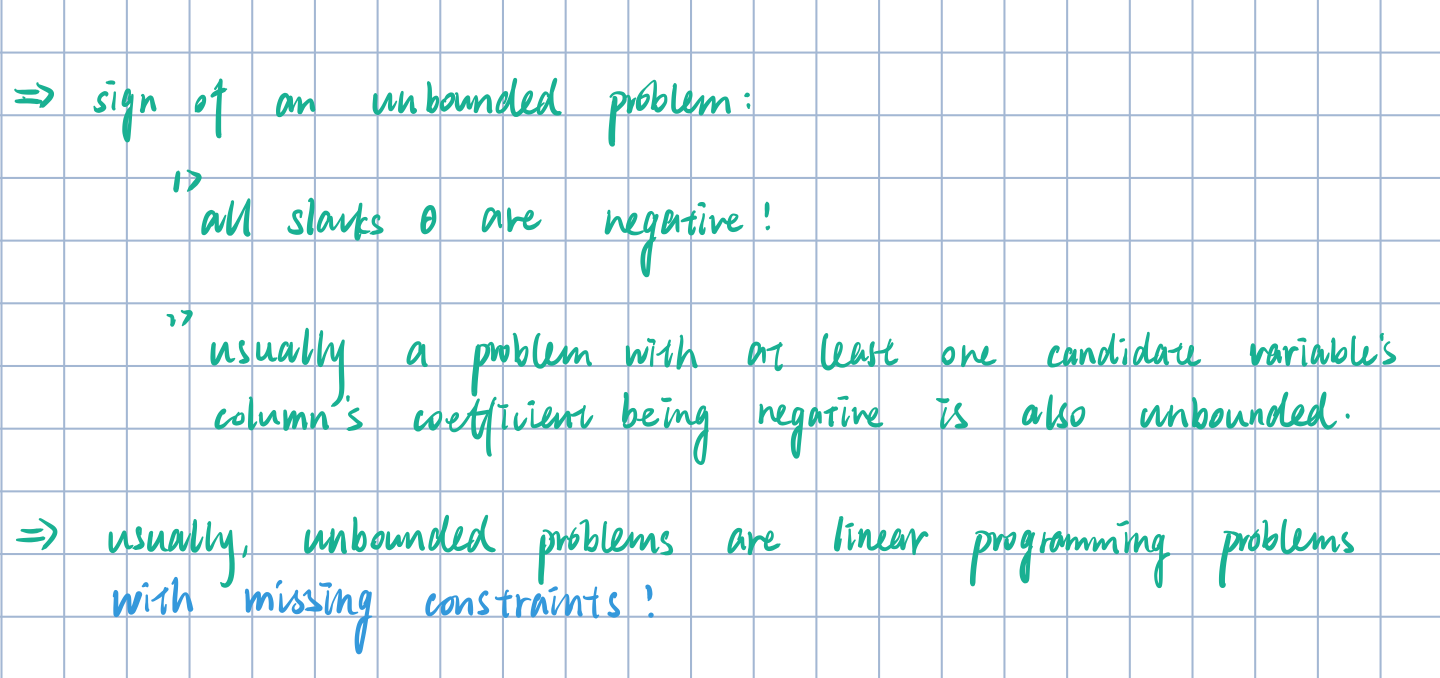 ⇒ sign of an unbounded problem:
1> all slacks θ are negative!
2> usually a problem with at least one candidate variable's
column's coefficient being negative is also unbounded.
⇒ usually, unbounded problems are linear programming problems
with missing constraints!